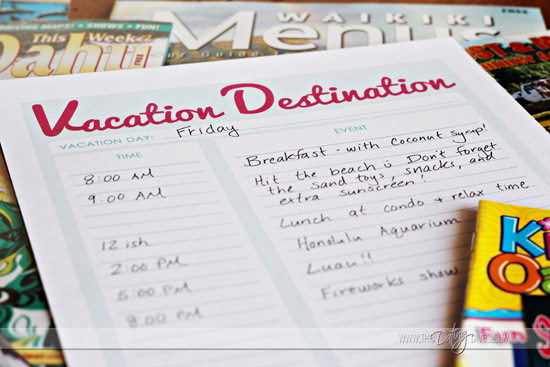 DRIVING MAPS! • SHOWS • FUN!
This Week
Oahu
FREE
WAIKIKI
Menus
Guide
FREE
Vacation Destination
VACATION DAY: Friday
TIME EVENT
8:00 AM Breakfast - with Coconut Syrup!
9:00 AM Hit the beach Don't forget
the sand toys, snacks, and
extra sunscreen!
12 ish Lunch at condo + relax time
2:00 PM Honolulu Aquarium
5:00 PM Luau!!
8:00 PM Fireworks show
Fun
WWW.THE Dating DIVAS.COM